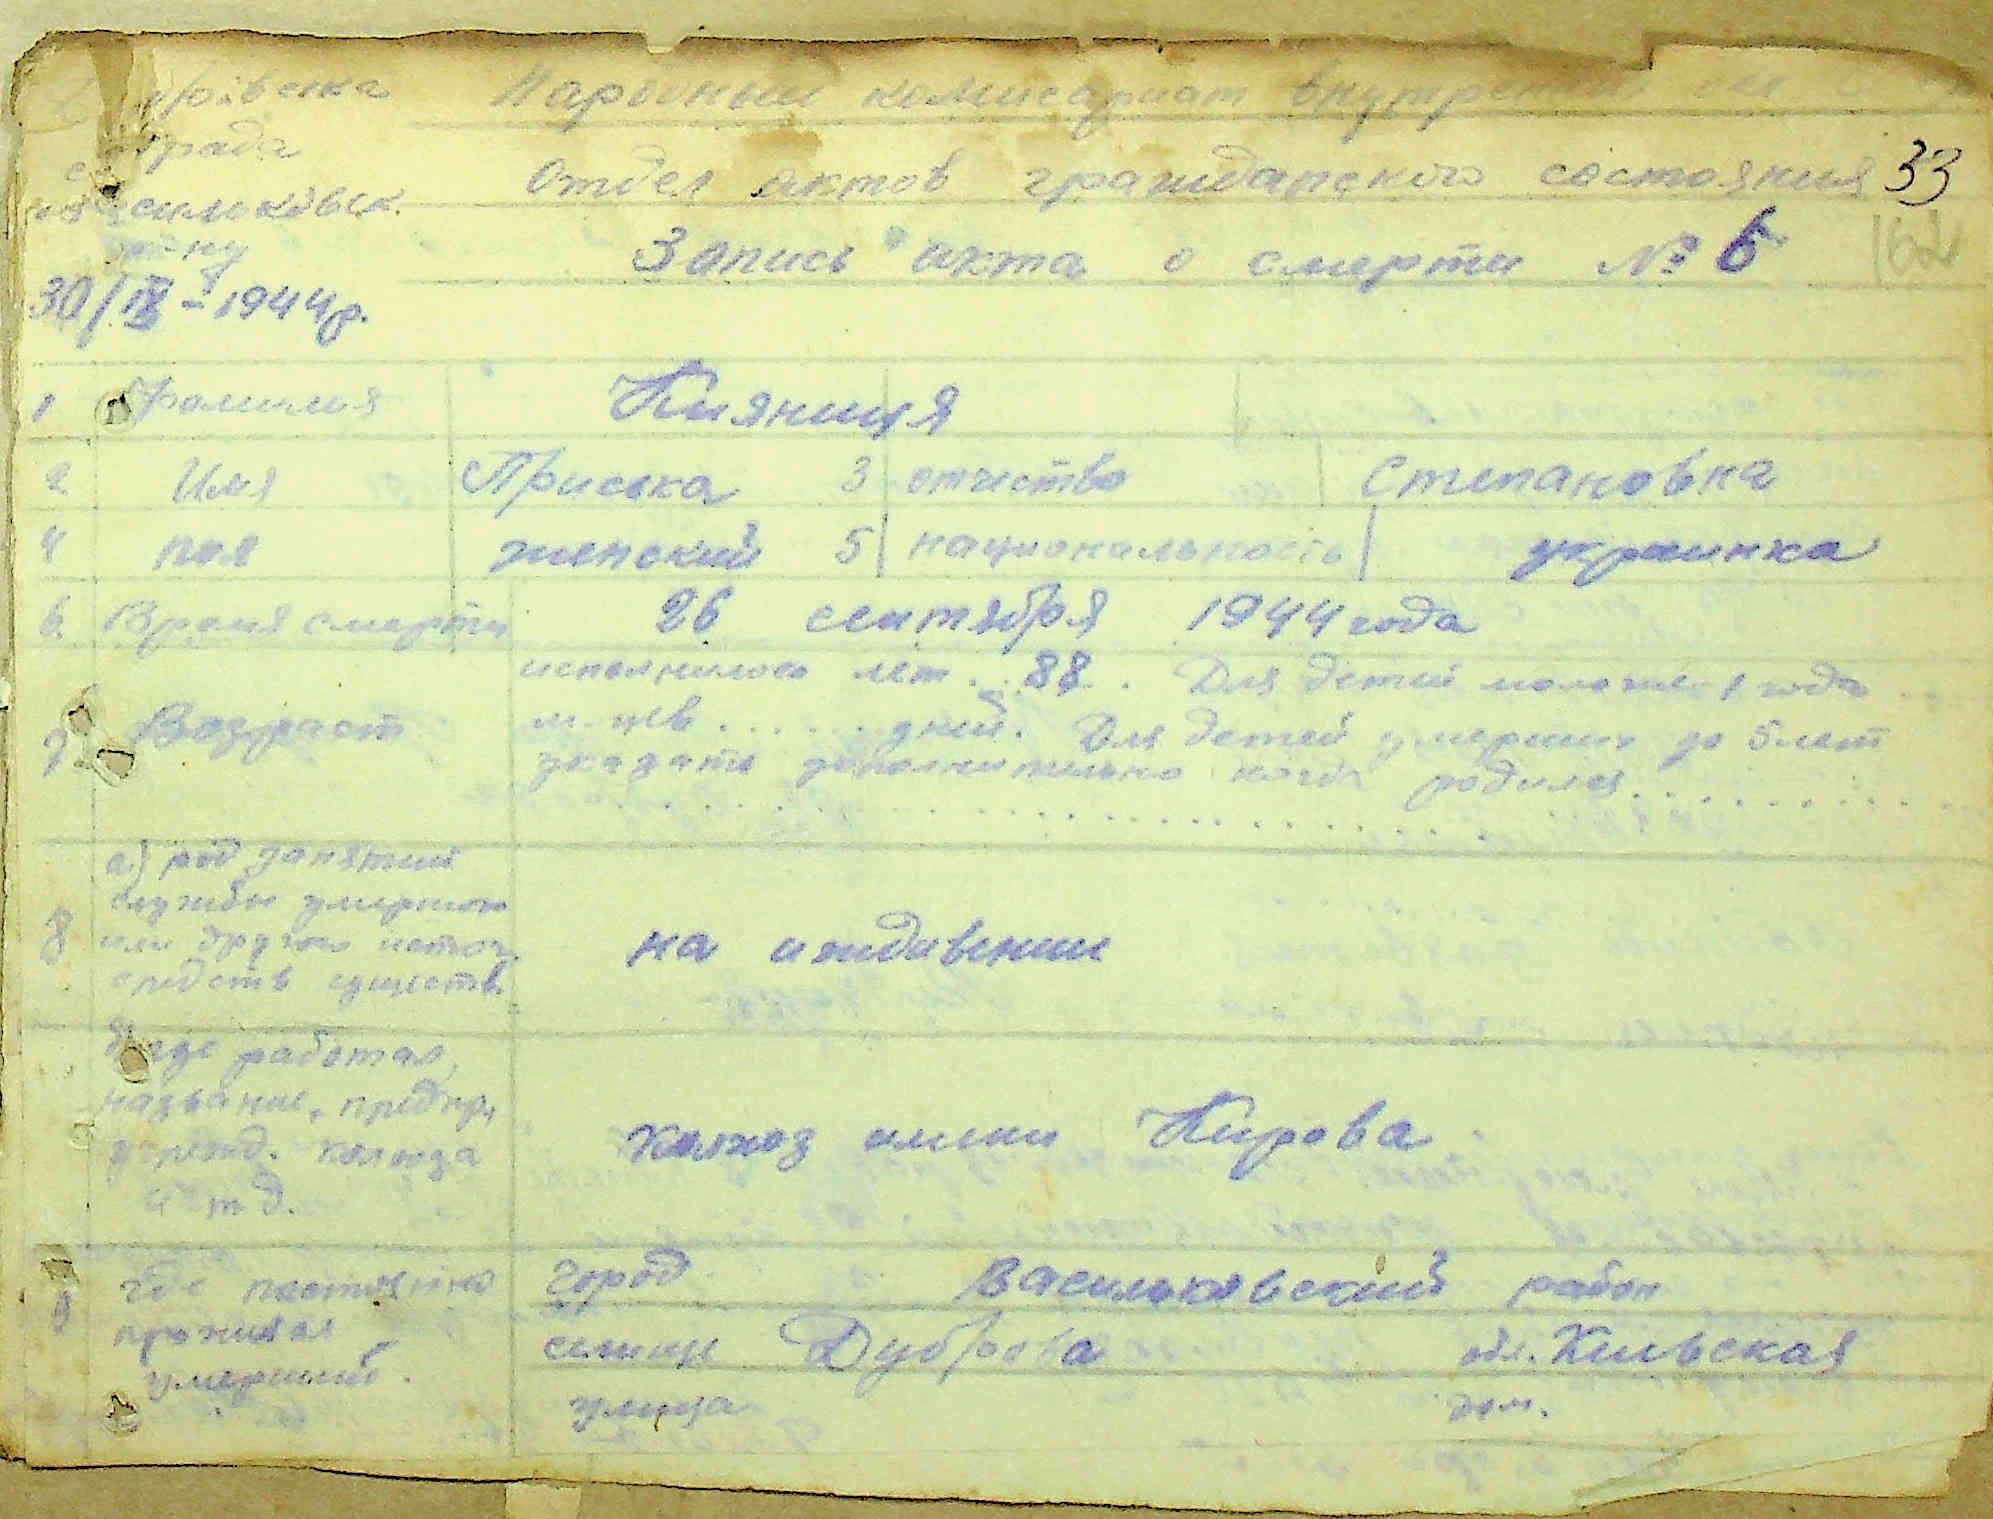 Народный комисариат внутрен
рада
Отдел актов гражданского состояния 33
Запись акта о смерти № 6
162
30/IX - 1944 р.
1 Фамилия Кияниця
2 Имя Приська 3 отчество Степановка
4 пол женский 5 национальность украинка
6 Время смерти 26 сентября 1944 года
7 Возраст исполнилось лет . . 88 . Для детей моложе 1 года
м-цев . . . . . . дней. Для детей умерших до 5 лет
указать дополнительно когда родился . . . . . . . . . .
8 а) род занятий
службы умершого
или другого источ.
средств существ.
на иждивении
б) где работал,
название, предпр,
учрежд. колхоза
и т д.
колхоз имени Кирова
9 где постоянно
проживал
умерший.
город Васильковский район
селище Дуброва обл. Киевская
улица дом.